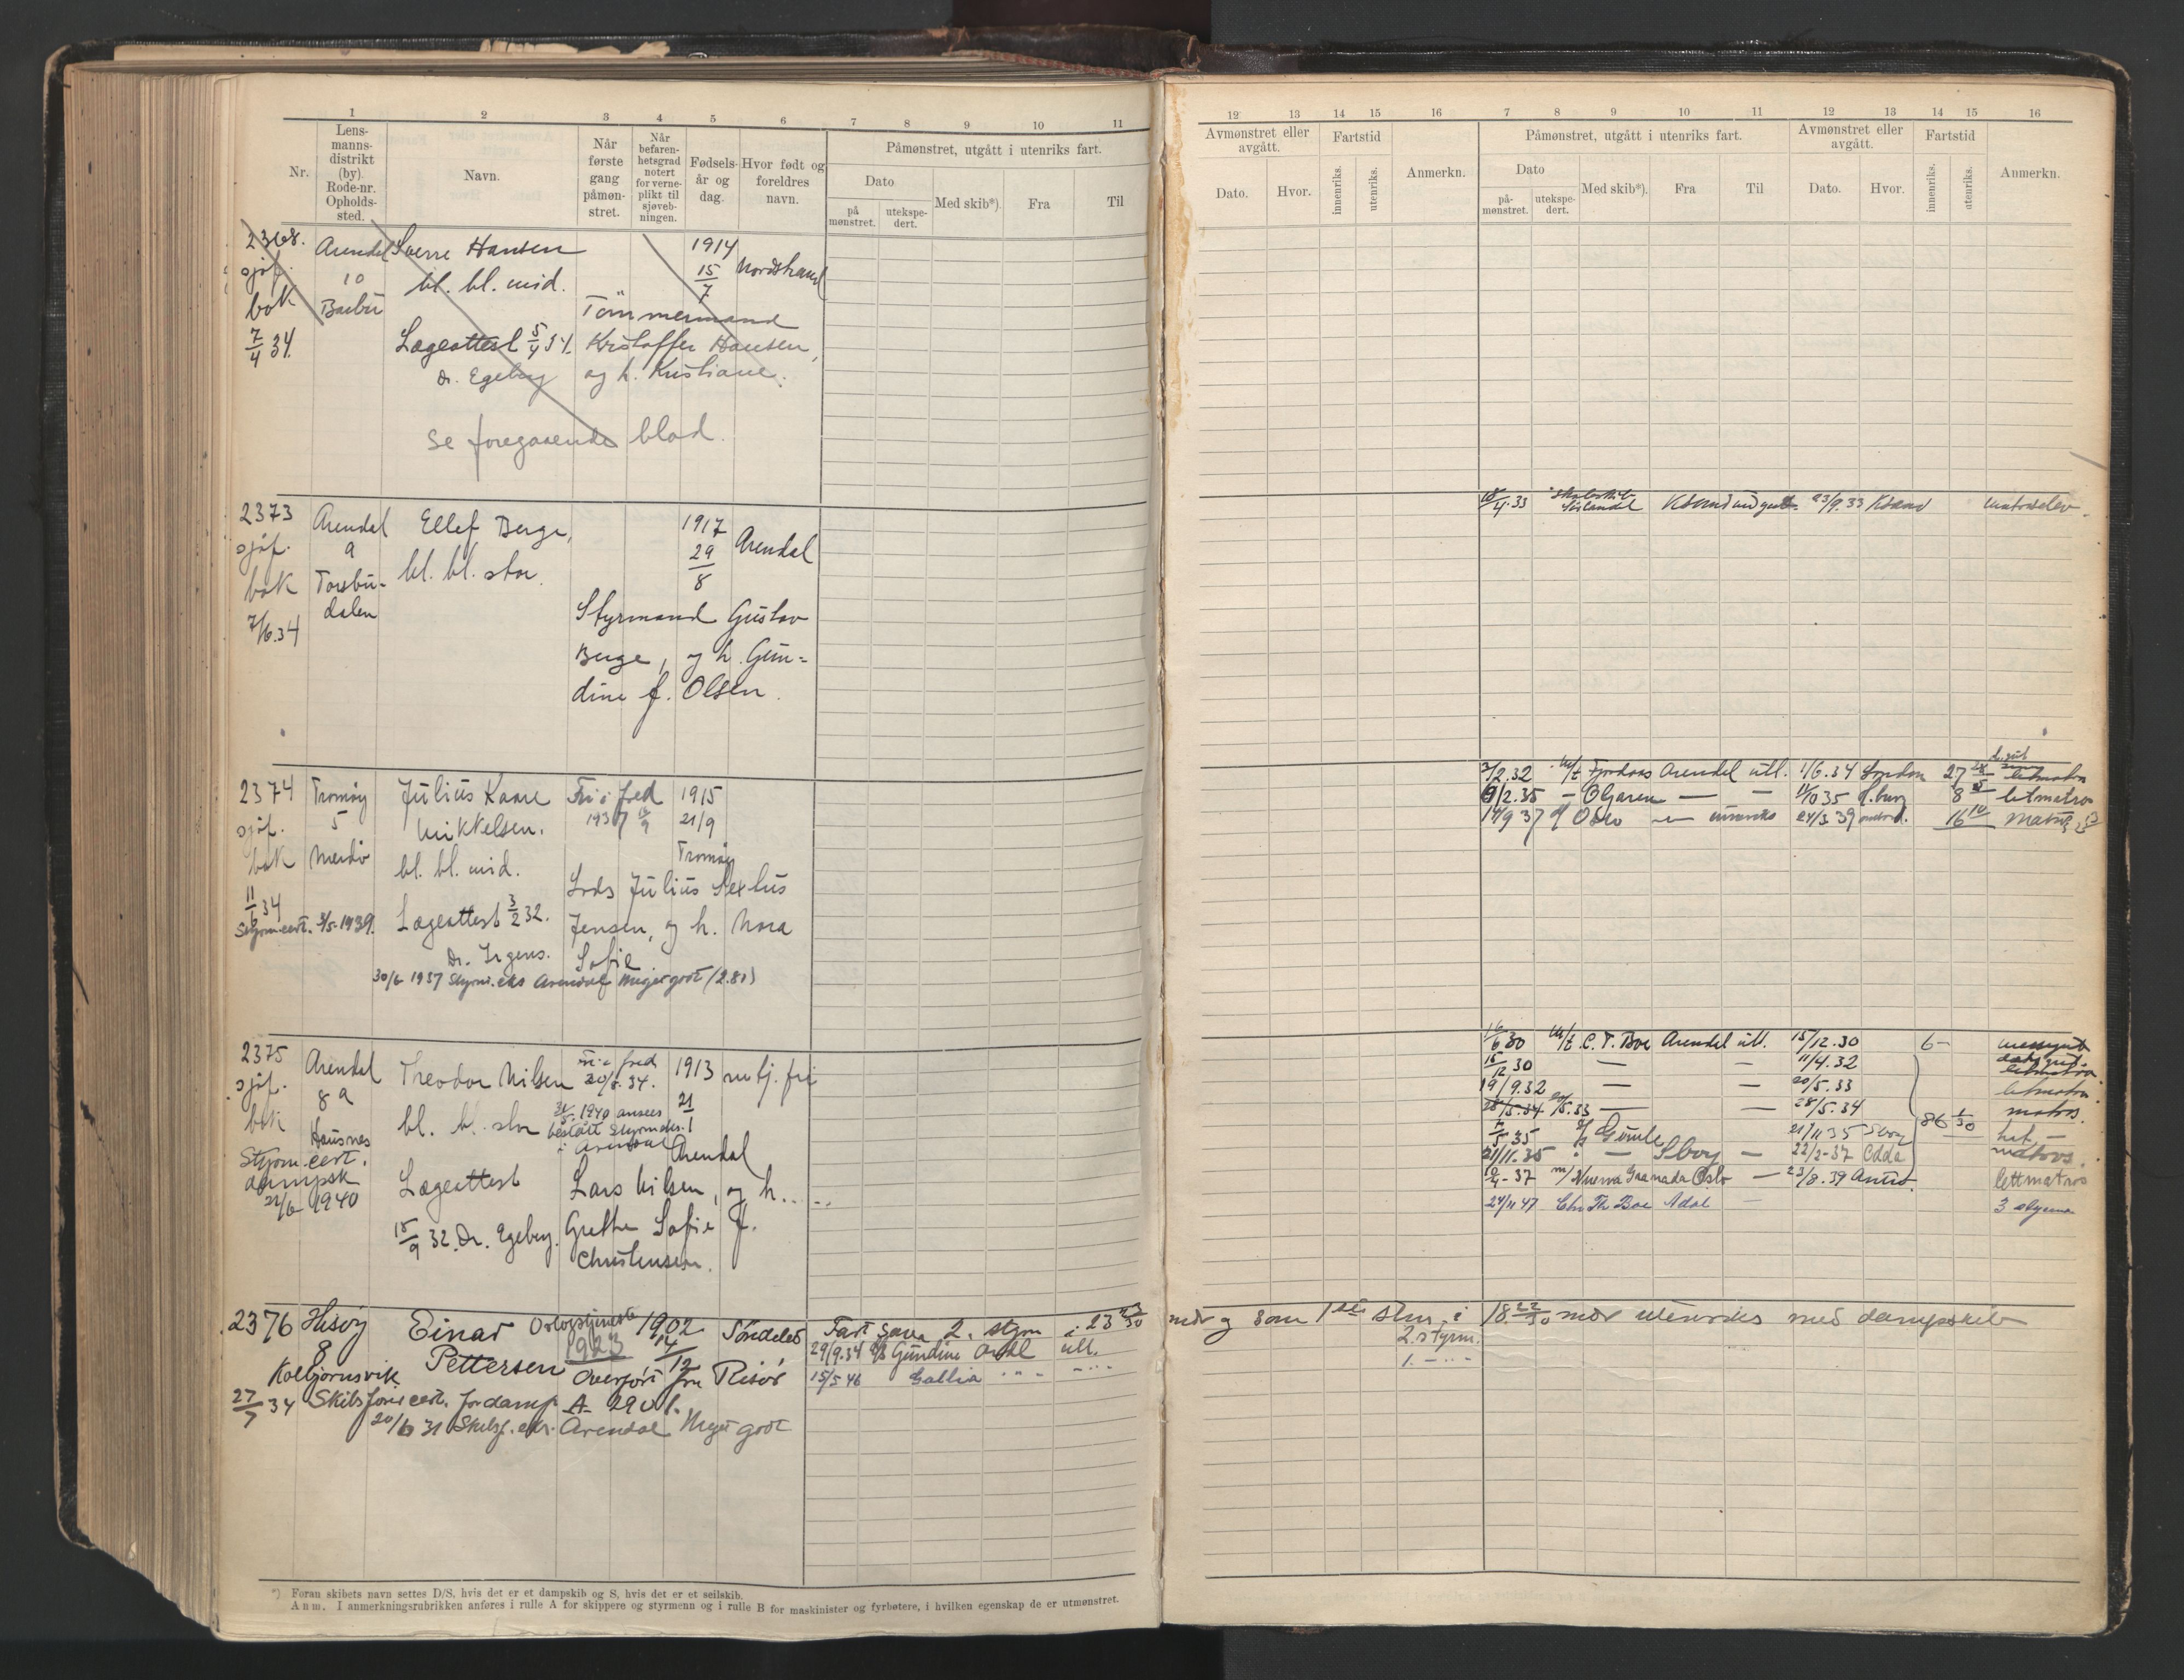 1 2 3 4 5 6 7 8 9 10 11
Nr.
Lens-
manns-
distrikt
(by).
Rode-nr.
Opholds-
sted.
Navn.
Når
første
gang
påmøn-
stret.
Når
befaren-
hetsgrad
notert
for verne-
plikt til
sjøveb-
ningen.
Fødsels-
år og
dag.
Hvor født og
foreldres
navn.
Påmønstret, utgått i utenriks fart.
Dato
på
mønstret.
utekspe-
dert.
Med skib*).
Fra
Til
2368. Arendal Sverre Hansen 1914
sjøf. 10 bl. bl. mid. 15/7 Nordstrand
bok Barbu Tömmermand
7/4 34. Lægeattest 5/4 34. Kristoffer Hansen,
Dr. Egeberg og h. Kristiane.
Se foregaaende blad.
2373 Arendal Ellef Berge, 1917
sjøf. 9 bl. bl. stor. 29/8 Arendal
bok Torsbu-
7/6.34 dalen
Styrmand Gustav
Berge, og h. Gun-
dine f. Olsen.
2374 Tromøy Julius Kaare Fri i fred 1915
sjøf. 5 Mikkelsen. 1937 21/9
bok Merdø bl. bl. mid. Tromøy
11/6 34 Lods Julius Sextus
Styrm.cert. 3/5-1939. Lægeattest 3/2 32. Jensen, og h. Nora
Dr. Irgens. Sofie
30/6 1937 Styrm. eks Arendal Meget godt (2.80)
2375 Arendal Theodor Nilsen fri i fred 1913
sjøf. 8a bl. bl. stor 30/5.34. 21/1
bok Hausnes 1940 ansees
Styrm.cert. bestått Styrm.eks.
dampsk i Arendal Arendal
1940 Lægeattest Lars Nilsen, og h.
15/9 32. Dr. Egeberg. Grethe Sofie f.
Christensen.
2376 Hisøy Einar 1902 Søndeled Fart som 2. styrm i 23
8 Pettersen 1923 14/12
Kolbjørnsvik Overført fra Risør
29/9.34 Gundine Ardl utl.
15/5 46 Gallia " " - " -
27/7 34 Skibsfører cert. for damp. A
20/6 31 Skibsf. eks. Arendal Meget godt
*) Foran skibets navn settes D/S, hvis det er et dampskib og S, hvis det er et seilskib.
Anm. I anmerkningsrubrikken anføres i rulle A for skippere og styrmenn og i rulle B for maskinister og fyrbøtere, i hvilken egenskap de er utmønstret.
12 13 14 15 16 7 8 9 10 11 12 13 14 15 16
Avmønstret eller
avgått.
Dato.
Hvor.
Fartstid
innenriks.
utenriks.
Anmerkn.
Påmønstret, utgått i utenriks fart.
Dato
på-
mønstret.
utekspe-
dert.
Med skib*).
Fra
Til
Avmønstret eller
avgått.
Dato.
Hvor.
Fartstid
innenriks.
utenriks.
Anmerkn.
18/4.33 23/9.33 Ksand
2/2.32 m/t Fjordaas Arendal utl. 1/6.34 London 27 letmatros
9/2.35 — — — H.burg 8 letmatros
37 Oslo — 24/3 39 16 10 matros
16/6 30 m/t C. T. Boe Arendal utl. 15/12.30 6 - messegut
15/12 30 — — 11/4.32 dæksgut
19/9.32 — — 20/5.33 letmatros
— — 28/5.34 matros
35 Gimle 21/11 35 86 1/30
21/11.35 " — — 22/2-37 Odda matros.
37 Oslo — 23/8.39 lettmatros
24/11 47 Chr Th Boe Adal — 3 styrm
mdr og som 1ste stm. i 18 22/30 mdr utenriks med dampskib
2. styrm.
1. — " —